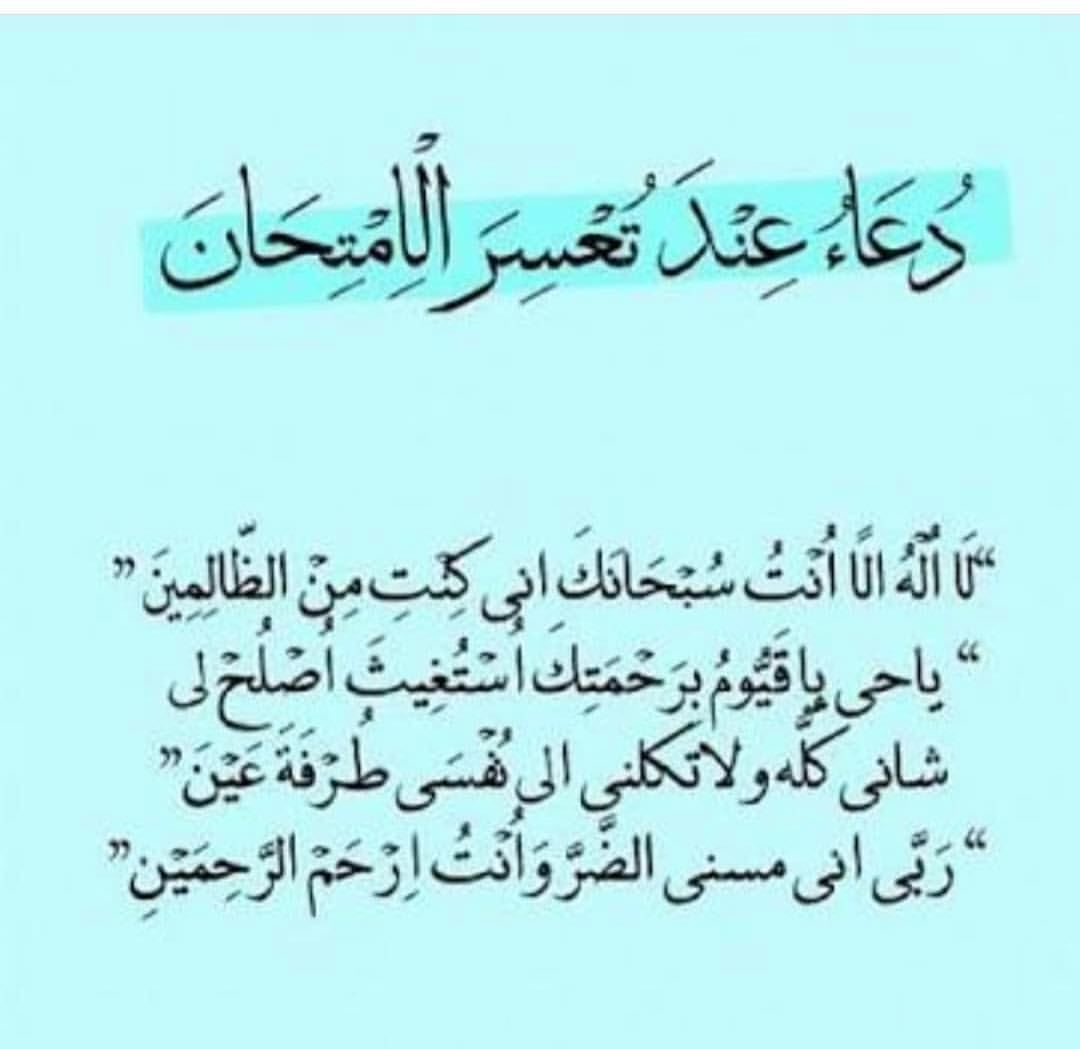 دُعَاءُ عِنْدَ تُعْسِرَ الْاِمْتِحَانَ
“لَا اُلٰهُ الَّا اُنْتُ سُبْحَانَكَ انِى كِنْتِ مِنْ الظَّالِمِينَ”
“ ياحى ياقَيُّومُ بِرَحْمَتِكَ اُسْتُغِيثَ اُصْلُحْ لى
شانى كُلَّه ولاتكلنى الى نُفْسَى طُرْفَةَ عَيْنَ”
“رَبَّى انى مسنى الضَّرَّ وَاُنْتُ اِرْحَمْ الرَّحِمَيْنِ”